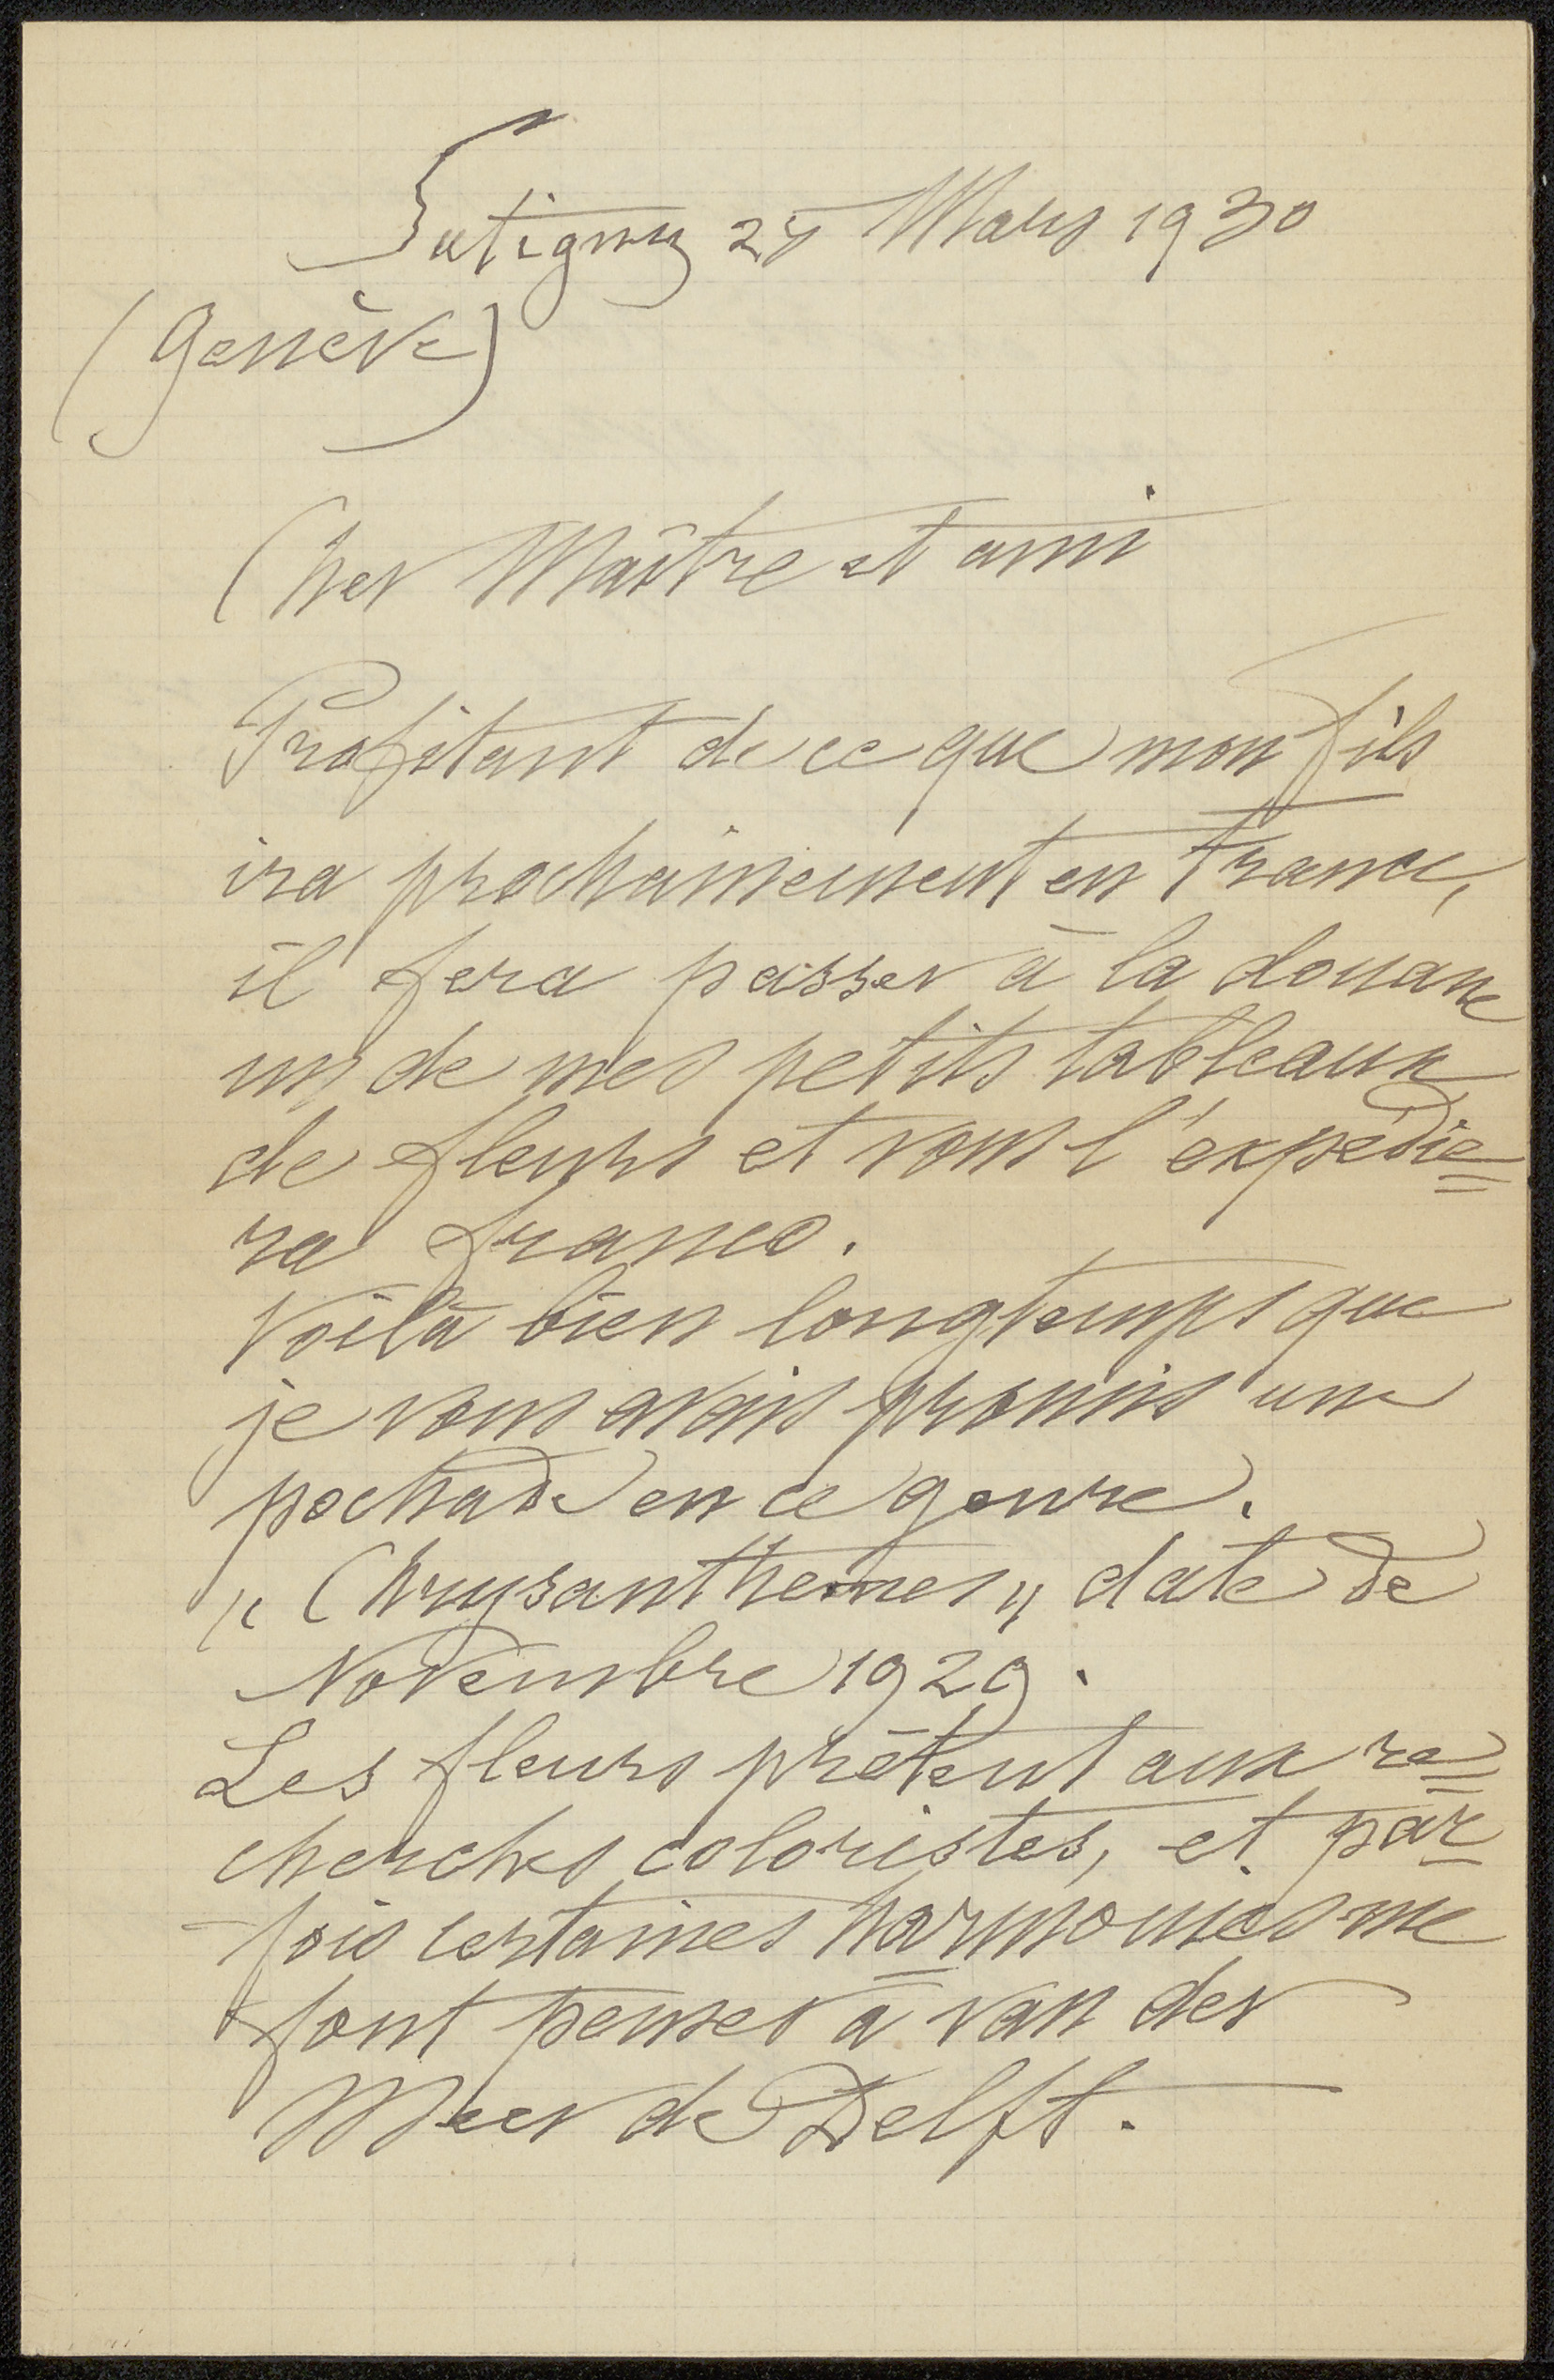 Satigny 24 Mars 1930
(Genève)
Cher Maître et ami
Profitant de ce que mon fils
ira prochainement en France,
il fera passer à la douane
un de mes petits tableaux
de fleurs et vous l'expédie=
ra franco.
Voilà bien longtemps que
je vous avais promis une
pochade en ce genre.
„ Chrysanthemes „ date de
Novembre 1929.
Les fleurs prêtent aux re=
cherches coloristes, et par=
fois certaines harmonies me
font penser à van der
Meer de Delft.